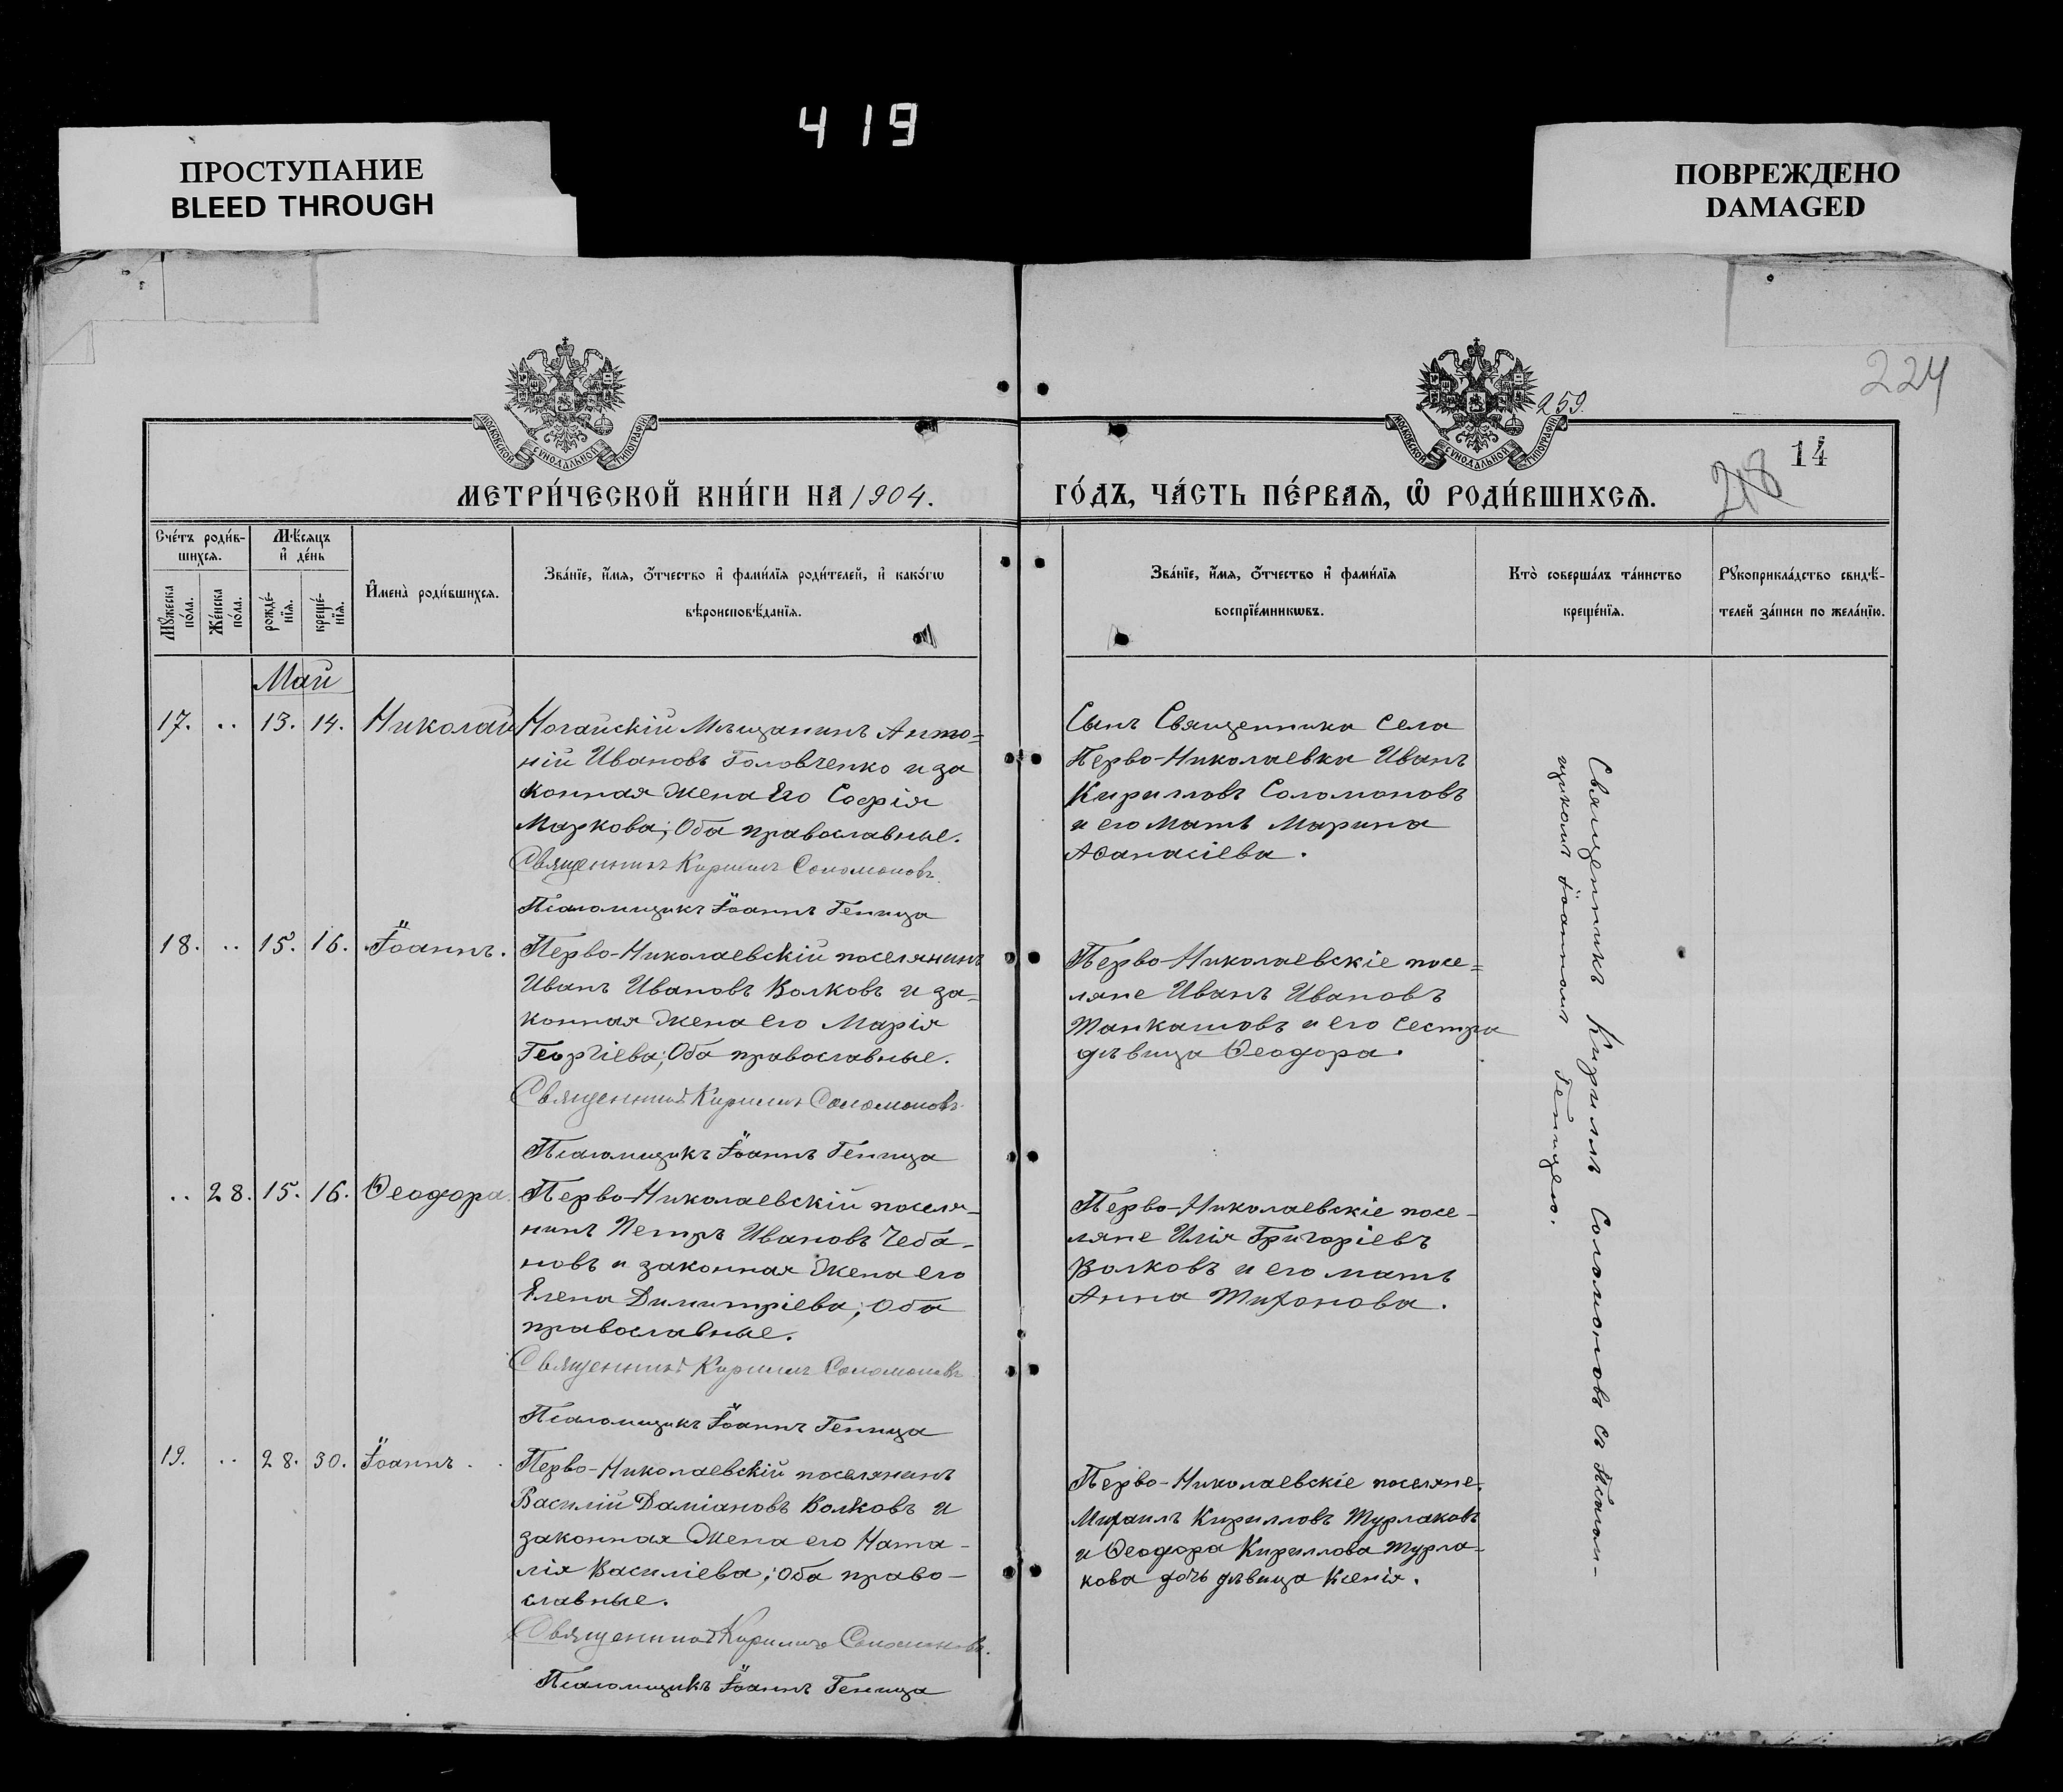 419
ПРОСТУПАНИЕ
BLEED THROUGH
ПОВРЕЖДЕНО
DAMAGED
224
259.
МОСКОВСКОЙ СУНОДАЛЬНОЙ ТИПОГРАФІИ
МОСКОВСКОЙ СУНОДАЛЬНОЙ ТИПОГРАФІИ
218
14
МЕТРИ́ЧЕСКОЙ КНИ́ГИ НА 1904.
ГО́ДЪ, ЧА́СТЬ ПЕ́РВАЯ, Ѡ҆ РОДИ́ВШИХСЯ.
Сче́тъ роди́в-
шихся.
Мѣ́сяцъ
и҆ де́нь
Мꙋ́жеска
по́ла.
Же́нска
по́ла.
рожде́-
нїя.
креще́-
нїя.
И҆мена̀ роди́вшихся.
Зва́нїе, и҆́мя, ѻ҆́тчество и҆ фами́лїя роди́телей, и҆ како́гѡ
вѣроисповѣ́данїя.
Зва́нїе, и҆́мя, ѻ҆́тчество и҆ фами́лїя
воспрїе́мникѡвъ.
Кто̀ соверша́лъ та́инство
креще́нїя.
Рꙋкоприкла́дство свидѣ́-
телей за́писи по жела́нїю.
Май
17. .. 13. 14. Николай
Ногайскій Мѣщанинъ Анто=
ній Ивановъ Головченко и за
конная жена Его Софія
Маркова; Оба православные.
Священникъ Кириллъ Соломоновъ.
Псаломщикъ Іоаннъ Геница
Сынъ Священника села
Перво-Николаевки Иванъ
Кирилловъ Соломоновъ
и его мать Марина
Аѳанасіева.
18. .. 15. 16. Іоаннъ.
Перво-Николаевскій поселянинъ
Иванъ Ивановъ Волковъ и за-
конная жена его Марія
Георгіева; Оба православные.
Священникъ Кириллъ Соломоновъ
Псаломщикъ Іоаннъ Геница
Перво-Николаевскіе посе=
ляне Иванъ Ивановъ
Танкашовъ и его сестра
дѣвица Ѳеодора.
.. 28. 15. 16. Ѳеодора.
Перво-Николаевскій поселя-
нинъ Петръ Ивановъ Чеба-
новъ и законная жена его
Елена Димитріева; Оба
православные.
Священникъ Кириллъ Соломоновъ
Псаломщикъ Іоаннъ Геница
Перво-Николаевскіе посе-
ляне Илія Григоріевъ
Волковъ и его мать
Анна Тихонова.
19. .. 28. 30. Іоаннъ.
Перво-Николаевскій поселянинъ
Василій Даміановъ Волковъ и
законная жена его Ната-
лія Василіева; Оба право-
славные.
Священникъ Кириллъ Соломоновъ.
Псаломщикъ Іоаннъ Геница
Перво-Николаевскіе поселяне
Михаилъ Кирилловъ Турлаковъ
и Ѳеодора Кириллова Турла-
кова дочь дѣвица Ксенія.
Священникъ Кириллъ Соломоновъ съ Псалом-
щикомъ Іоанномъ Геницею.